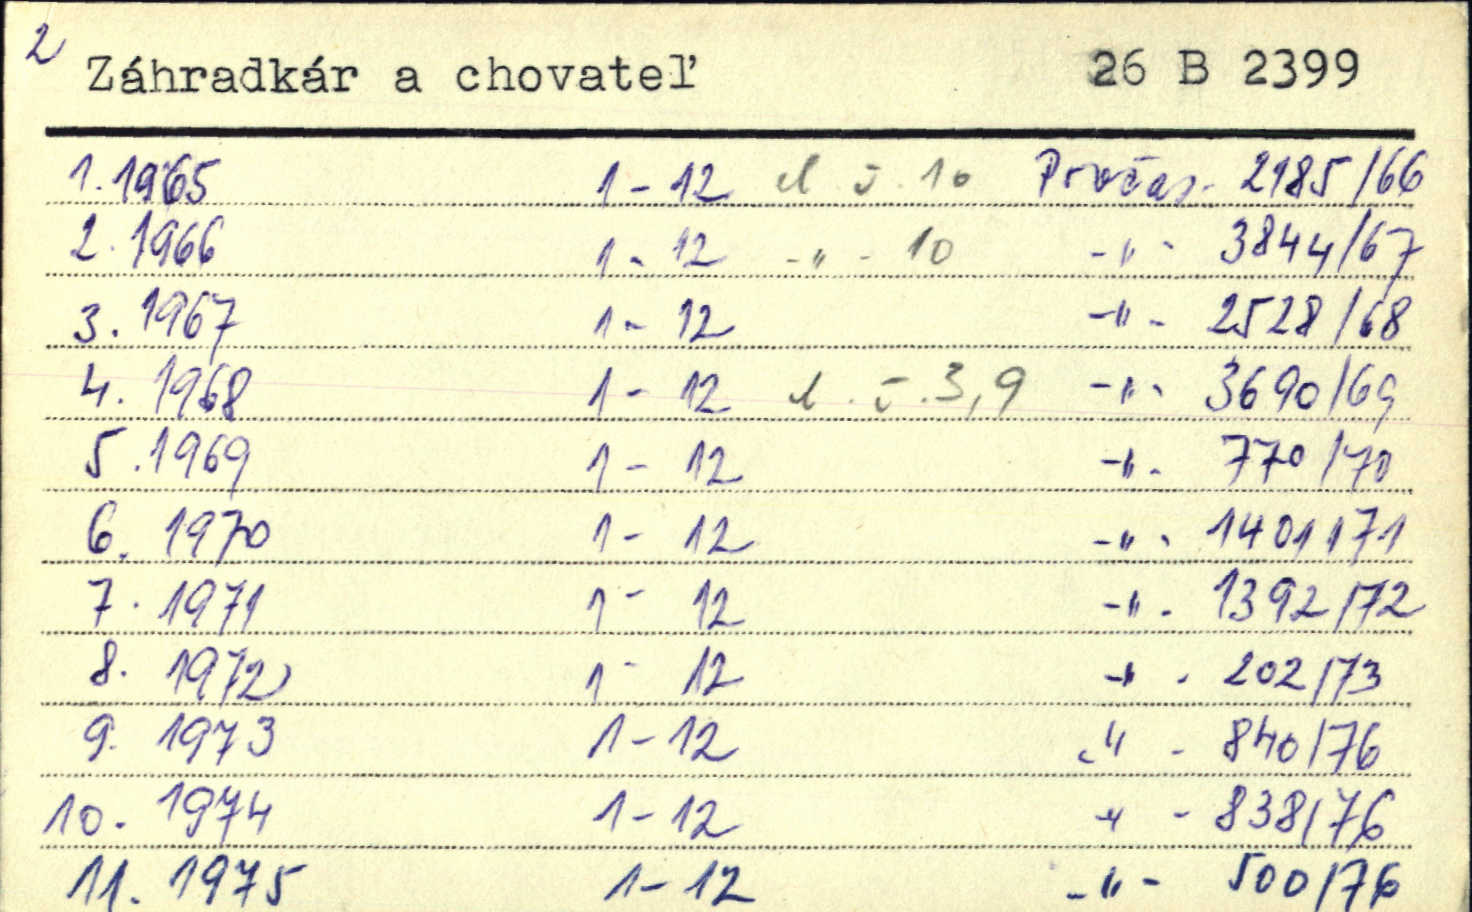 2
Záhradkár a chovateľ 26 B 2399
1. 1965 1 - 12 č. 10 2185/66
2. 1966 1 - 12 -"- 10 -"- 3844/67
3. 1967 1 - 12 -"- 2528/68
4. 1968 1 - 12 č. 3,9 -"- 3690/69
5. 1969 1 - 12 -"- 770/70
6. 1970 1 - 12 -"- 1401/71
7. 1971 1 - 12 -"- 1392/72
8. 1972 1 - 12 -"- 202/73
9. 1973 1 - 12 -"- 840/76
10. 1974 1 - 12 -"- 838/76
11. 1975 1 - 12 -"- 500/76